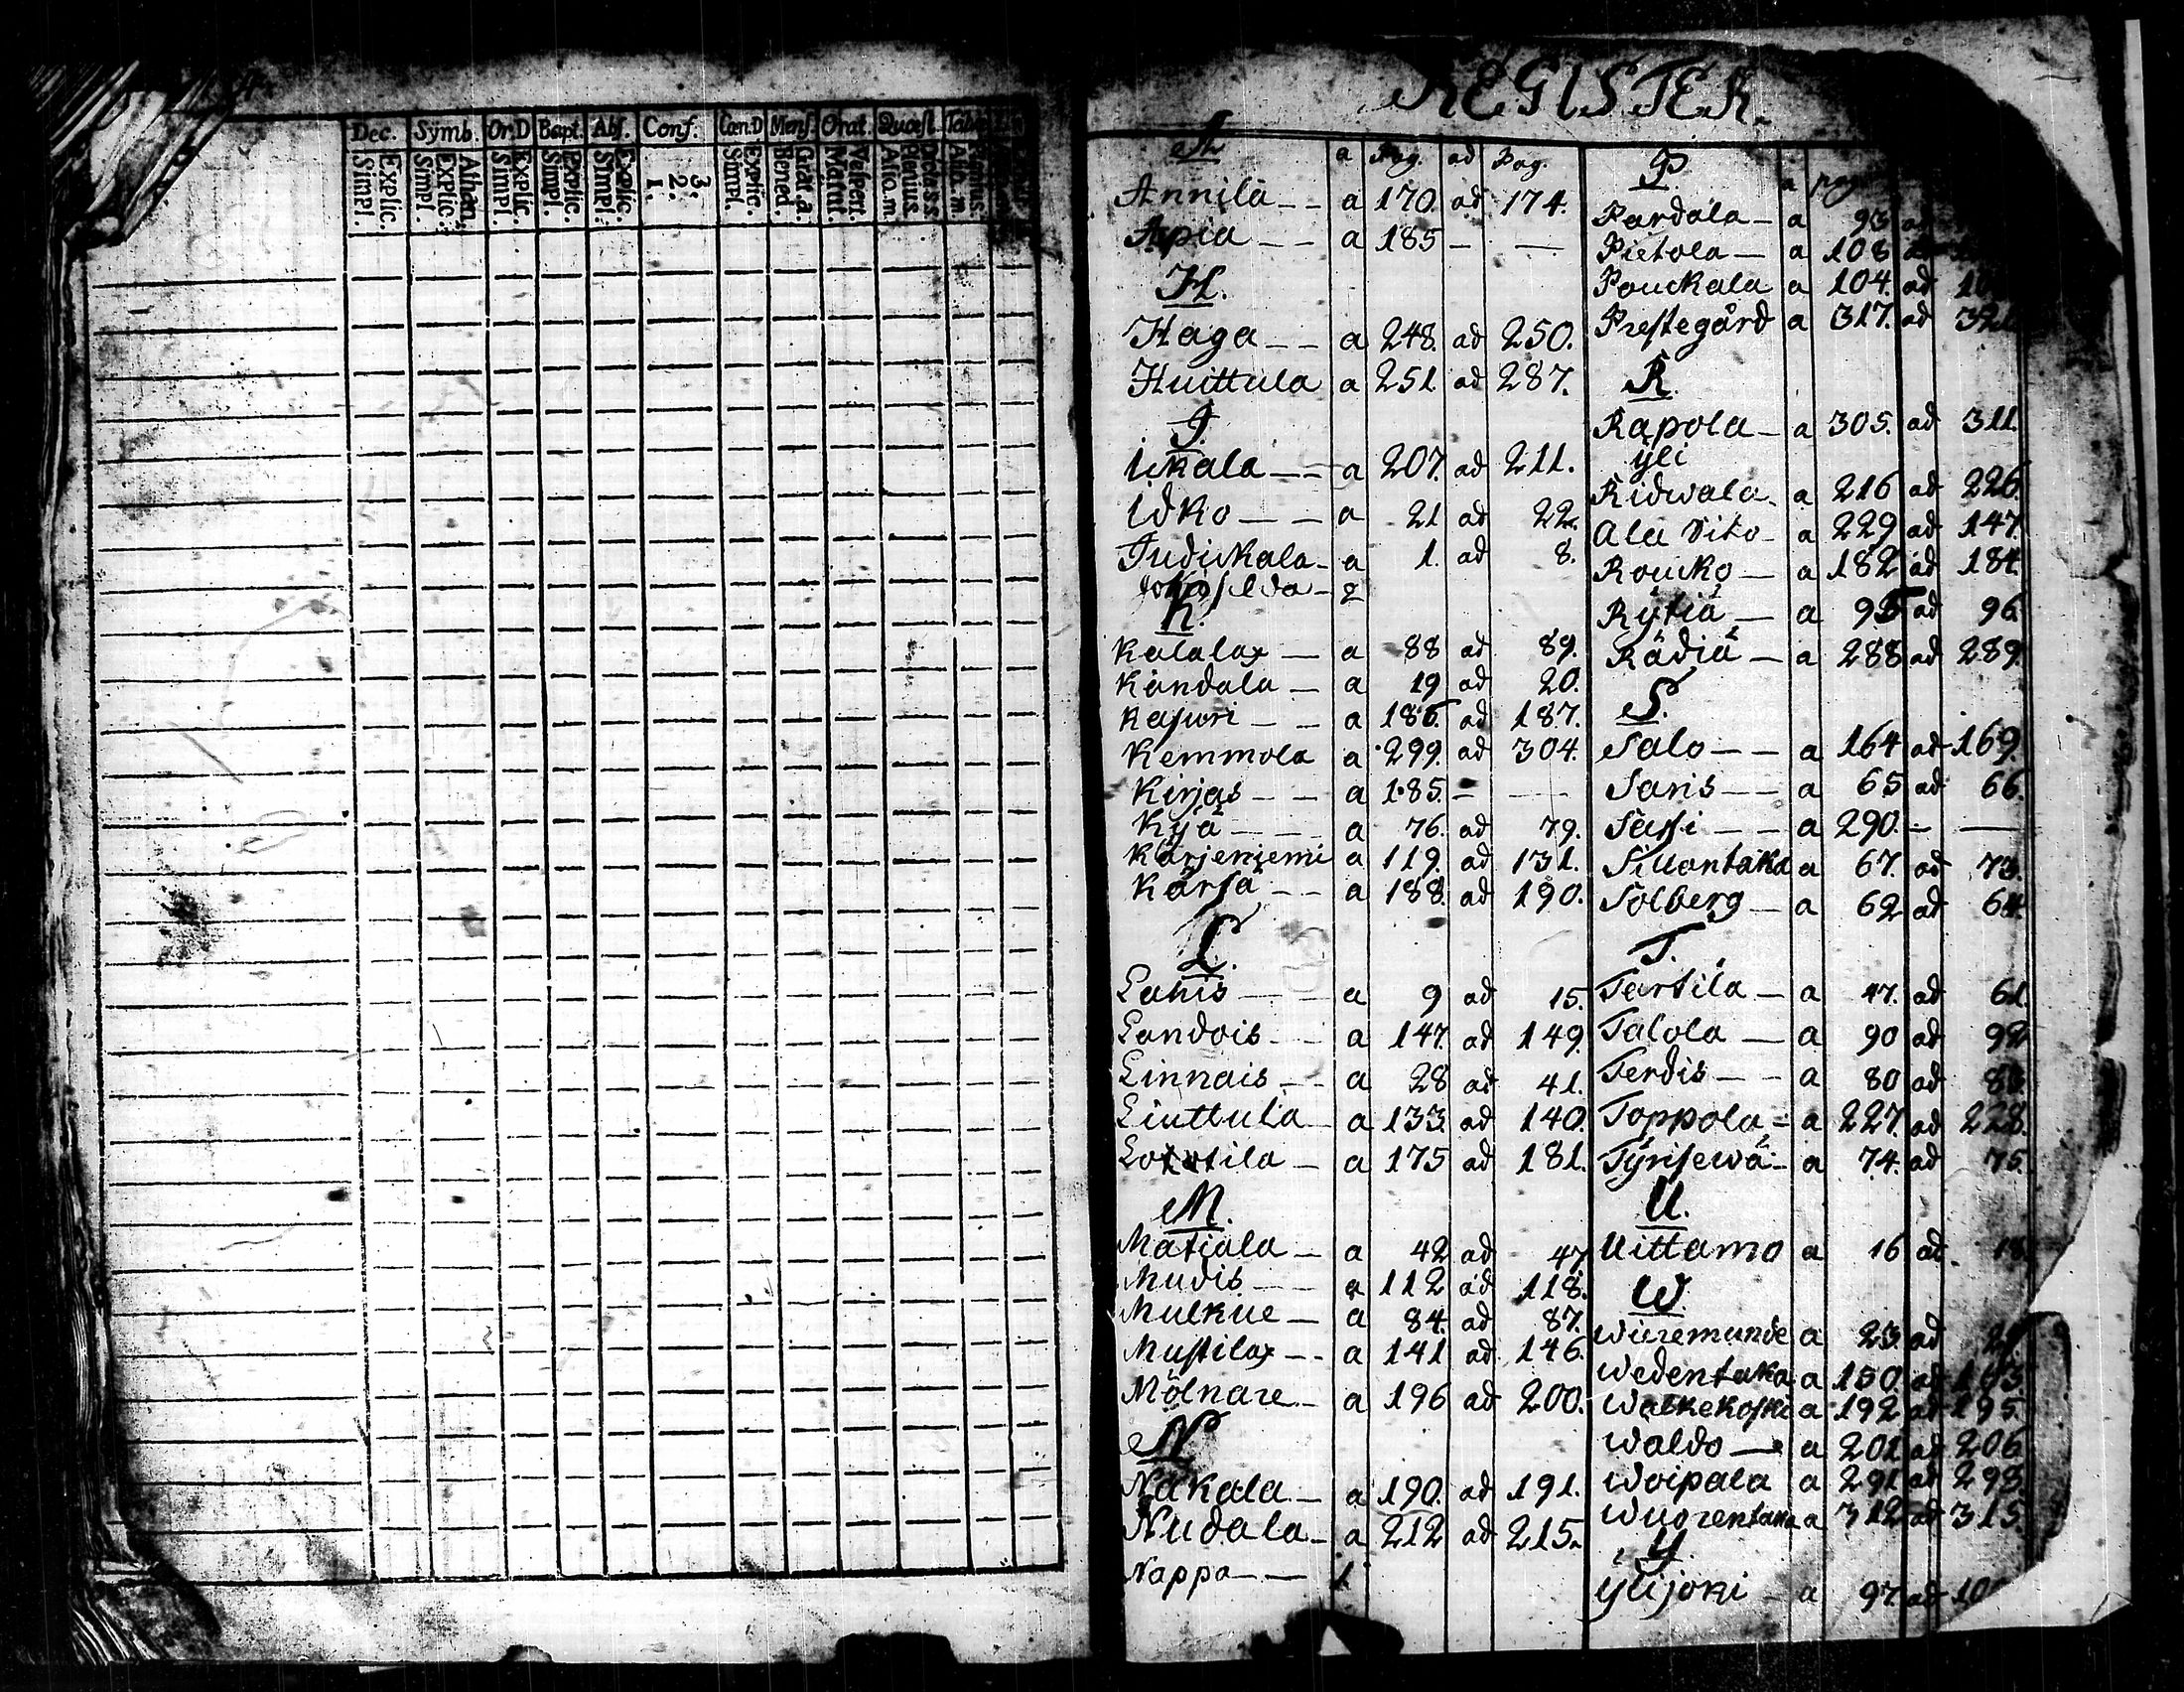 Dec. Symb. Or.D Bapt. Abs. Conf. Cæn.D Mens. Orat. Quæst.
Explic. Simpl. Athan. Explic. Simpl. Explic. Simpl. Explic. Simpl. Explic. Simpl. 3. 2. 1. Explic. Simpl. Grat. a. Bened. Vespert. Matut.
REGISTER.
A a Pag. ad Pag.
Annila a 170. ad 174.
Apia a 185 - —
H.
Haga a 248. ad 250.
Huittula a 251 ad 287.
I.
Ickala a 207. ad 211.
Idko a 21 ad 22.
Judickala a 1. ad 8.
K.
Kalalax a 88 ad 89.
Kandala a 19 ad 20.
Kasuri a 186. ad 187.
Kemmola a 299. ad 304.
Kirjas a 185. - —
Kyjä a 76. ad 79.
Kärjeniemi a 119. ad 131.
Kärsä a 188. ad 190.
L.
Lahis a 9 ad 15.
Landois a 147 ad 149.
Linnais a 28 ad 41.
Liuttula a 133 ad 140.
Lotila a 175 ad 181.
M.
Matiala a 42 ad 47
Mudis a 112 ad 118.
Mulkue a 84. ad 87.
Mustilax a 141 ad 146.
Mölnare a 196 ad 200.
N
Nakala a 190. ad 191.
Nudala a 212 ad 215.
Nappo 1
P. a pag
Pardala a 93
Pietola a 108
Pouckala a 104. ad
Prestegård a 317. ad
R.
Rapola a 305. ad 311.
yli
Ridwala a 216 ad 226.
Ala Dito a 229 ad 147.
Roucko a 182 ad 184.
Rytiä a 95 ad 96.
Rädiä a 288 ad 289.
S.
Salo a 164 ad 169.
Saris a 65 ad 66.
Sassi a 290. - —
Sillantaka a 67. ad 73.
Solberg a 62 ad 64.
T.
Tartila a 47. ad 61.
Talola a 90 ad 92
Terdis a 80 ad
Toppola a 227. ad 228.
Tyrisewä a 74. ad 75.
U.
Uittamo a 16 ad 18
W.
Wuremunde a 23. ad
Wedentaka a 150 ad 163.
Walkekoski a 192 ad 195.
Waldo a 201 ad 206
Woipala a 291 ad 298.
Wuorentaka a 312 ad 315.
Y.
Ylijoki a 97. ad